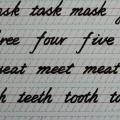 task task mask
four five
seat meet meat
teeth tooth